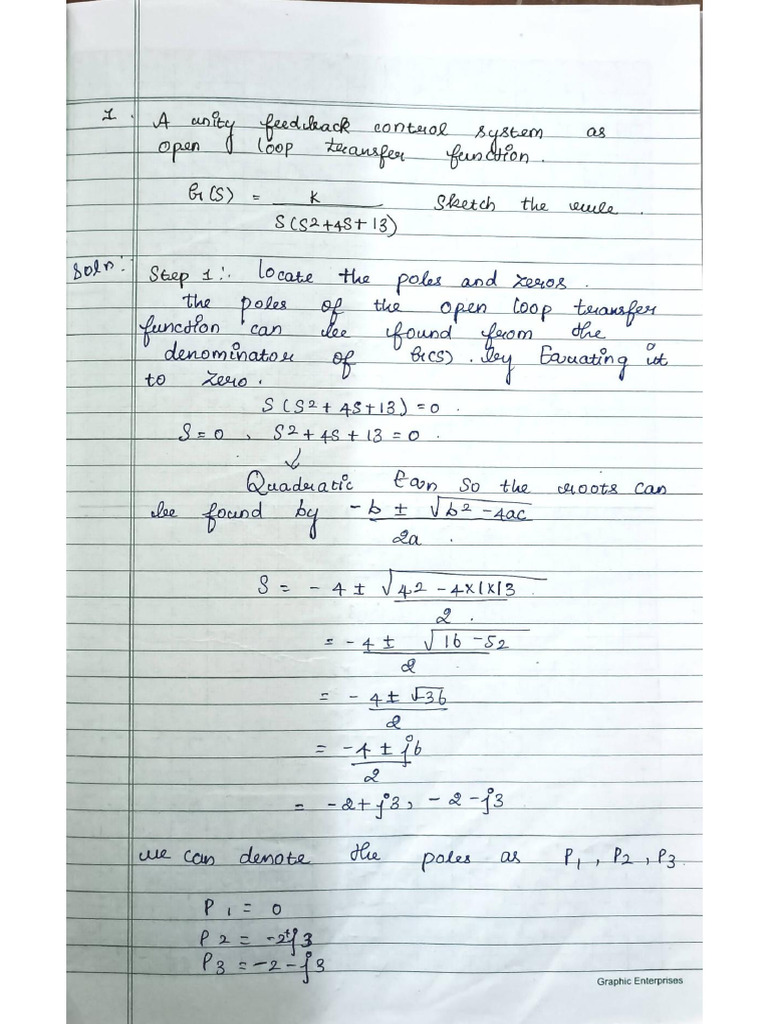 1. A unity feedback control system as
open loop transfer function.
G(S) = K / S(S2+4S+13) Sketch the rule.
Soln: Step 1:. locate the poles and zeros.
the poles of the open loop transfer
function can be found from the
denominator of G(S). by Equating it
to zero.
S(S2+4S+13)=0.
S=0, S2+4S+13=0.
↓
Quadratic Eqn so the roots can
be found by -b ± √b2-4ac / 2a.
S = -4 ± √42-4×1×13 / 2.
= -4 ± √16-52 / 2
= -4±√-36 / 2
= -4 ± j6 / 2
= -2+j3, -2-j3
we can denote the poles as P1, P2, P3.
P1 = 0
P2 = -2+j3
P3 = -2-j3
Graphic Enterprises